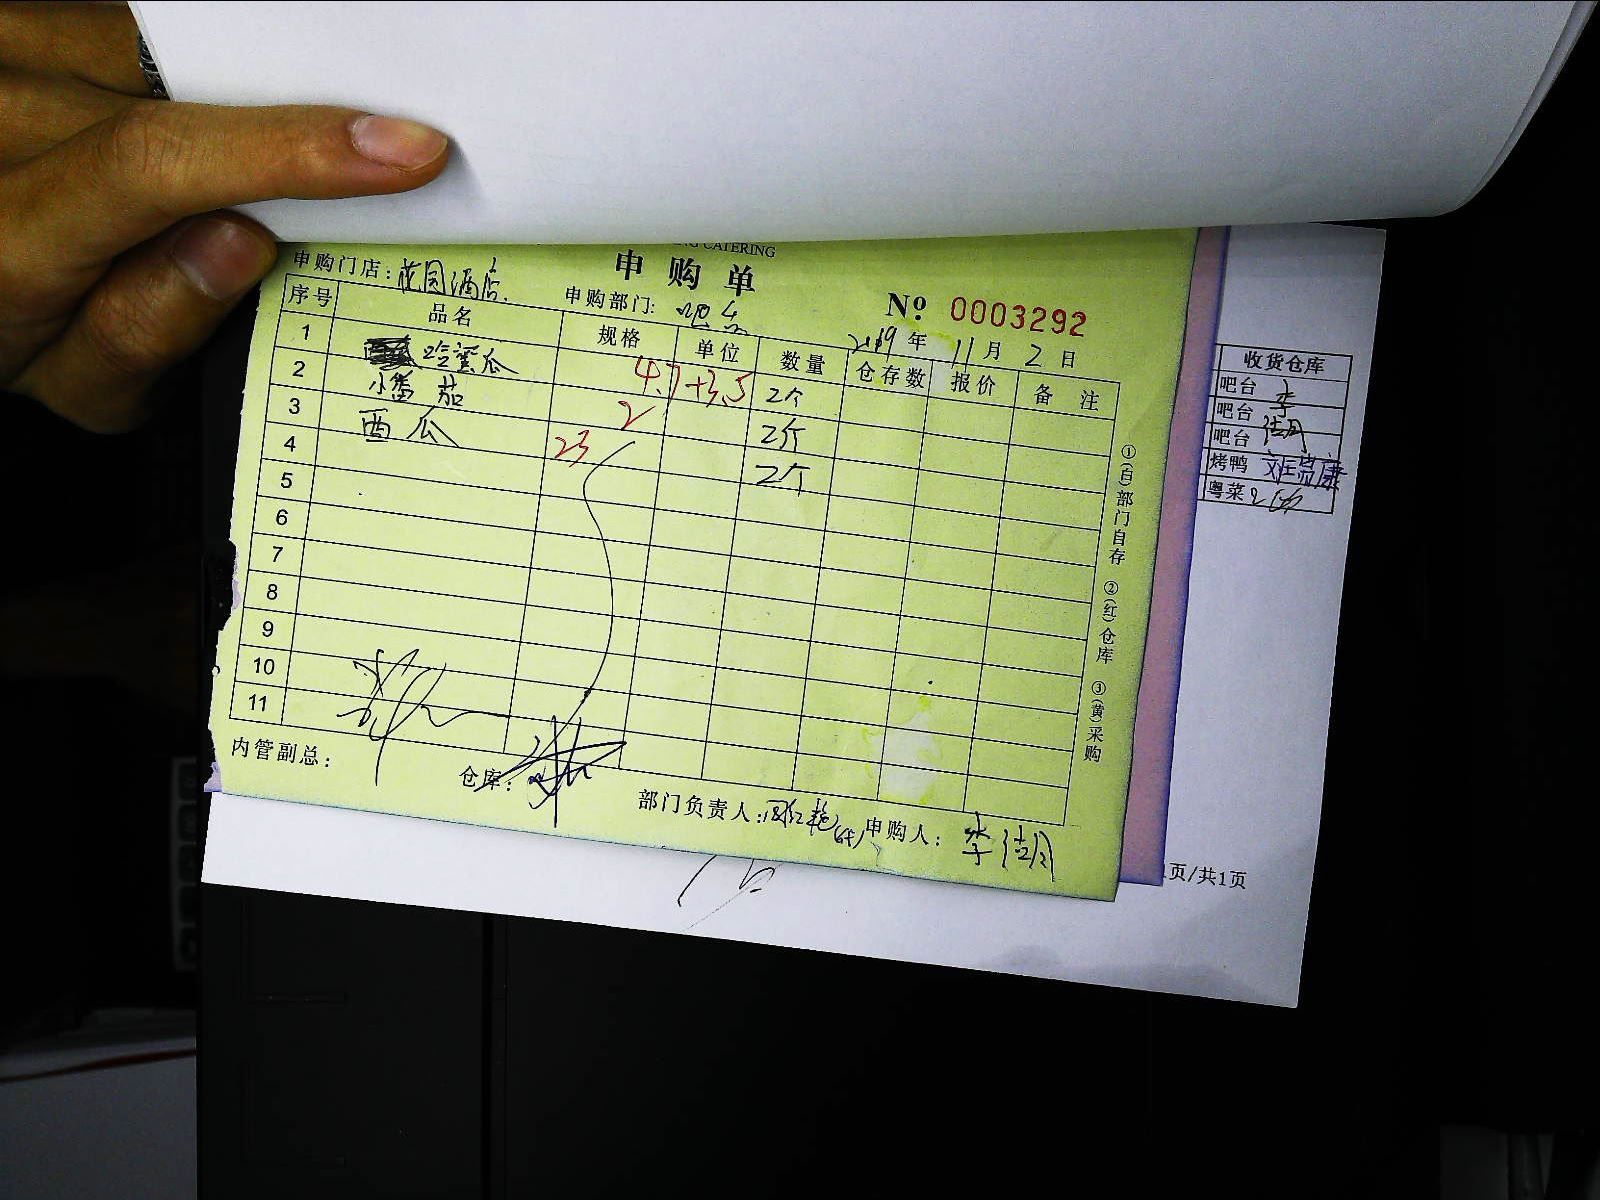 NG CATERING
申购单
申购门店：花园酒店
申购部门：吧台
№ 0003292
2019年 11月 2日
序号 品名 规格 单位 数量 仓存数 报价 备 注
1 哈蜜瓜 4.7+3.5 2个
2 小番茄 2 2斤
3 西瓜 23 2个
4
5
6
7
8
9
10
11
①(白)部门自存 ②(红)仓库 ③(黄)采购
内管副总：
仓库：
部门负责人：
申购人：李清
收货仓库
吧台 李
吧台
吧台
烤鸭
粤菜
页/共1页